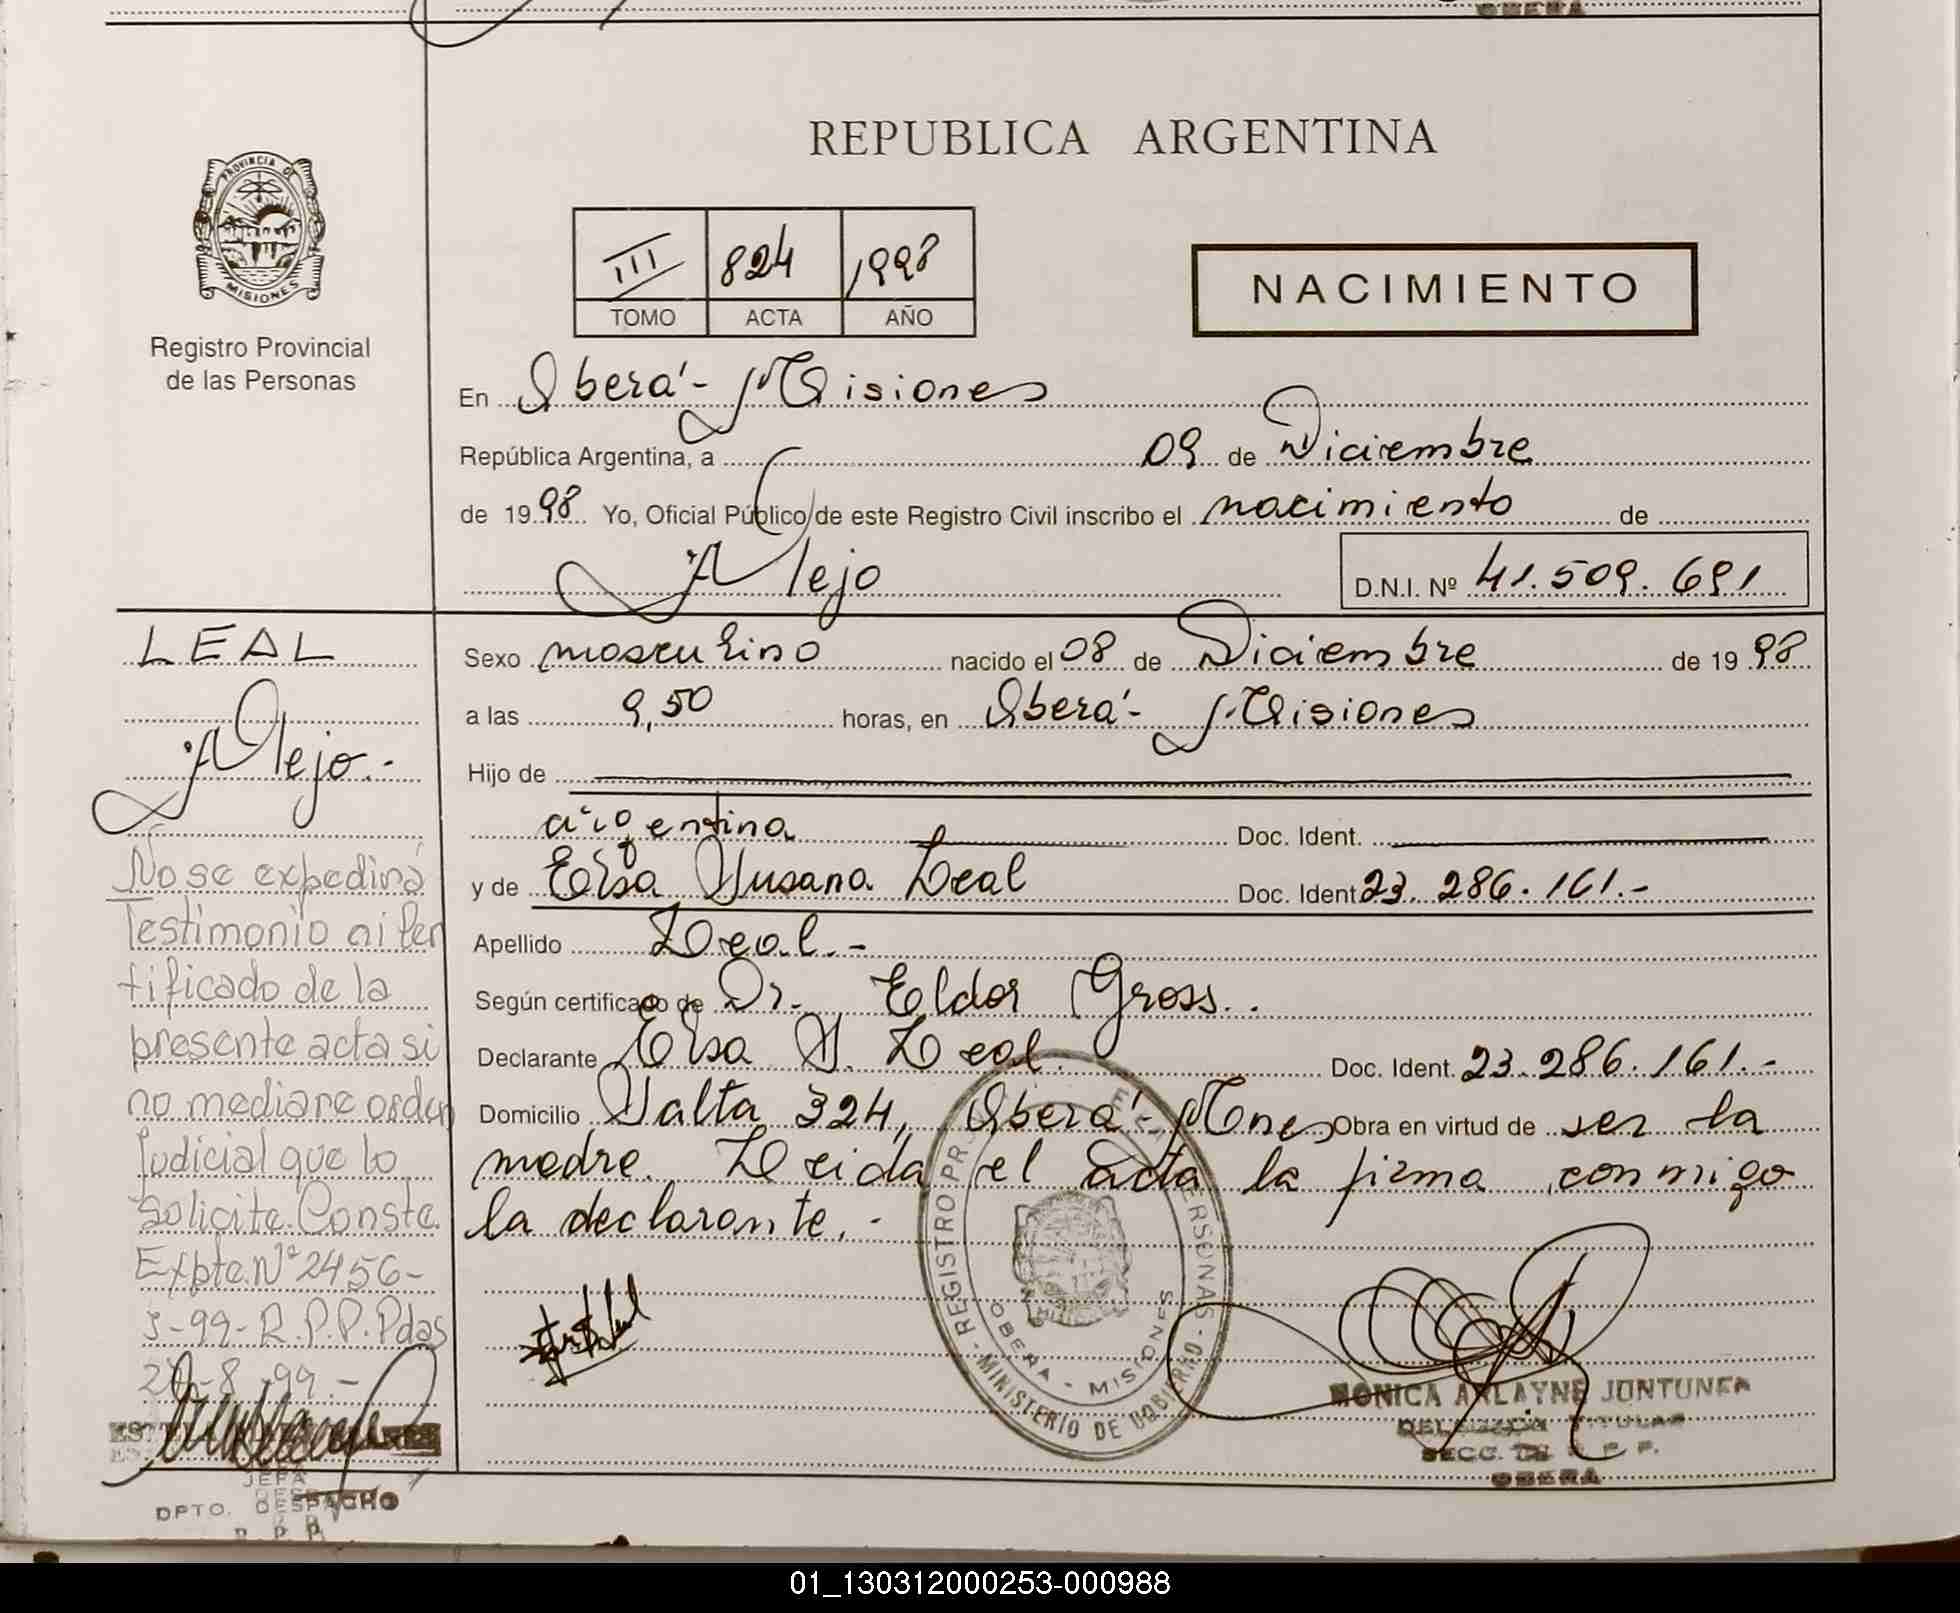 OBERA
REPUBLICA ARGENTINA
PROVINCIA DE
MISIONES
Registro Provincial
de las Personas
III 824 1998
TOMO ACTA AÑO
NACIMIENTO
En Oberá - Misiones
República Argentina, a 09 de Diciembre
de 1998 Yo, Oficial Público de este Registro Civil inscribo el nacimiento de
Alejo D.N.I. Nº 41.509.691
LEAL
Alejo.-
Sexo masculino nacido el 08 de Diciembre de 1998
a las 9,50 horas, en Oberá - Misiones
Hijo de
argentina Doc. Ident.
y de Elsa Susana Leal Doc. Ident 23.286.161.-
Apellido Leal.-
Según certificado de Dr. Eldor Gross.
Declarante Elsa S. Leal. Doc. Ident. 23.286.161.-
Domicilio Salta 324, Oberá - Mnes Obra en virtud de ser la
madre. Leida el acta la firma conmigo
la declarante.-
No se expedirá
Testimonio ni Cer
tificado de la
presente acta si
no mediare orden
Judicial que lo
solicite. Conste.
Expte. Nº 2456-
J-99-R.P.P.Pdas
-8-99.-
JEFA
DPTO. DESPACHO
R.P.P.
REGISTRO PERSONAS
MINISTERIO DE GOBIERNO
OBERA - MISIONES
MONICA ARLAYNE JONTUNEN
DELEGADA TITULAR
SECC. OBERA
01_130312000253-000988